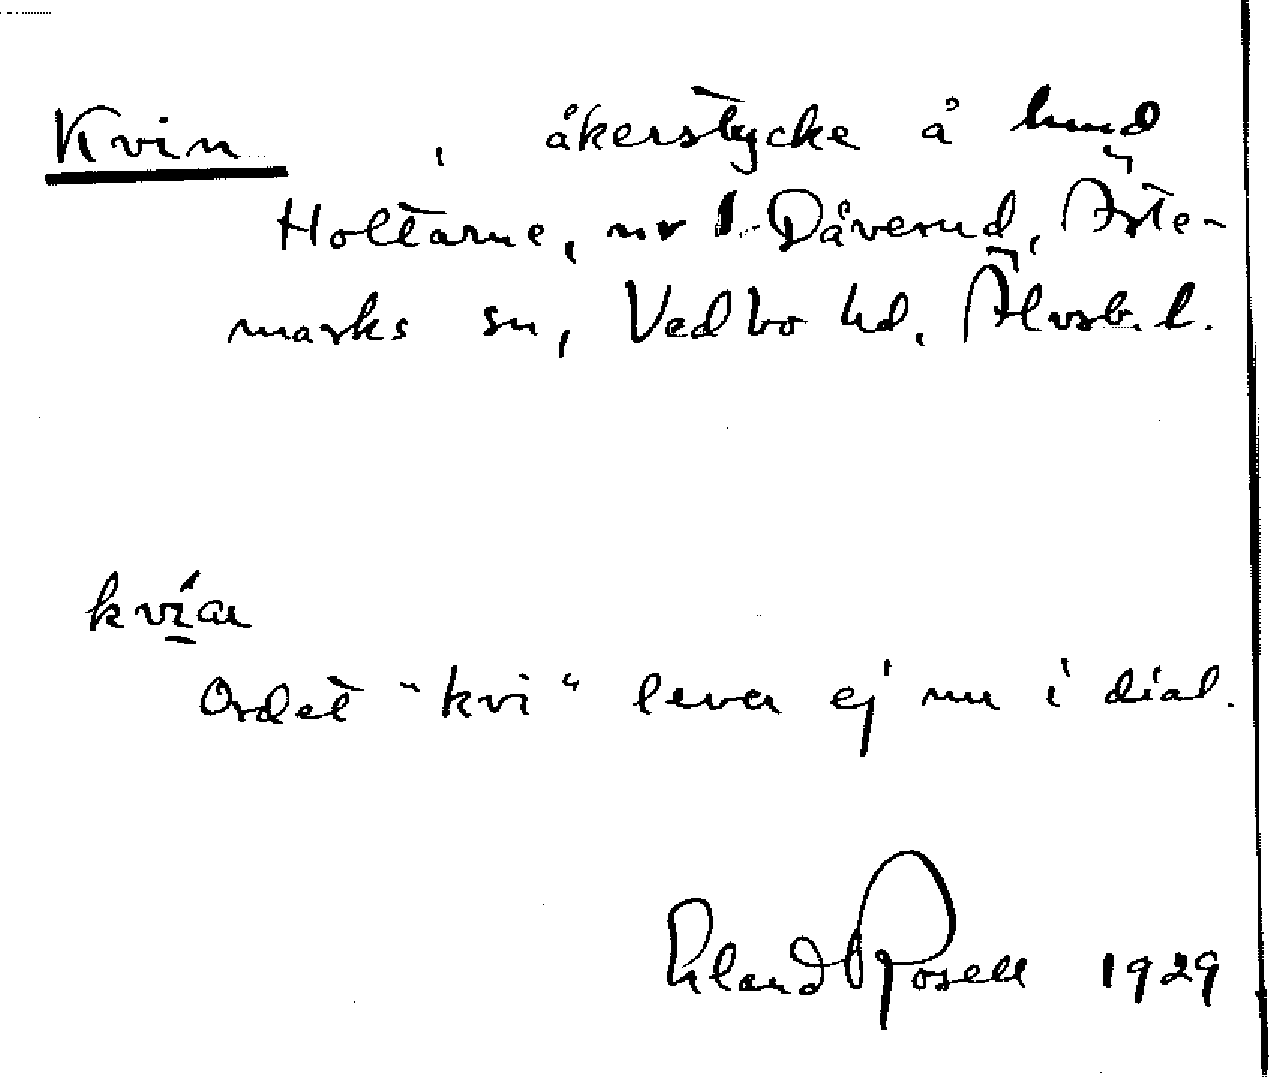 Kvin, åkerstycke å hmd
Holtarne, nr 1 Dåverud, Ärte-
marks sn, Vedbo hd, Älvsb. l.
kvían
Ordet "kvi" lever ej nu i dial.
Erland Rosell 1929